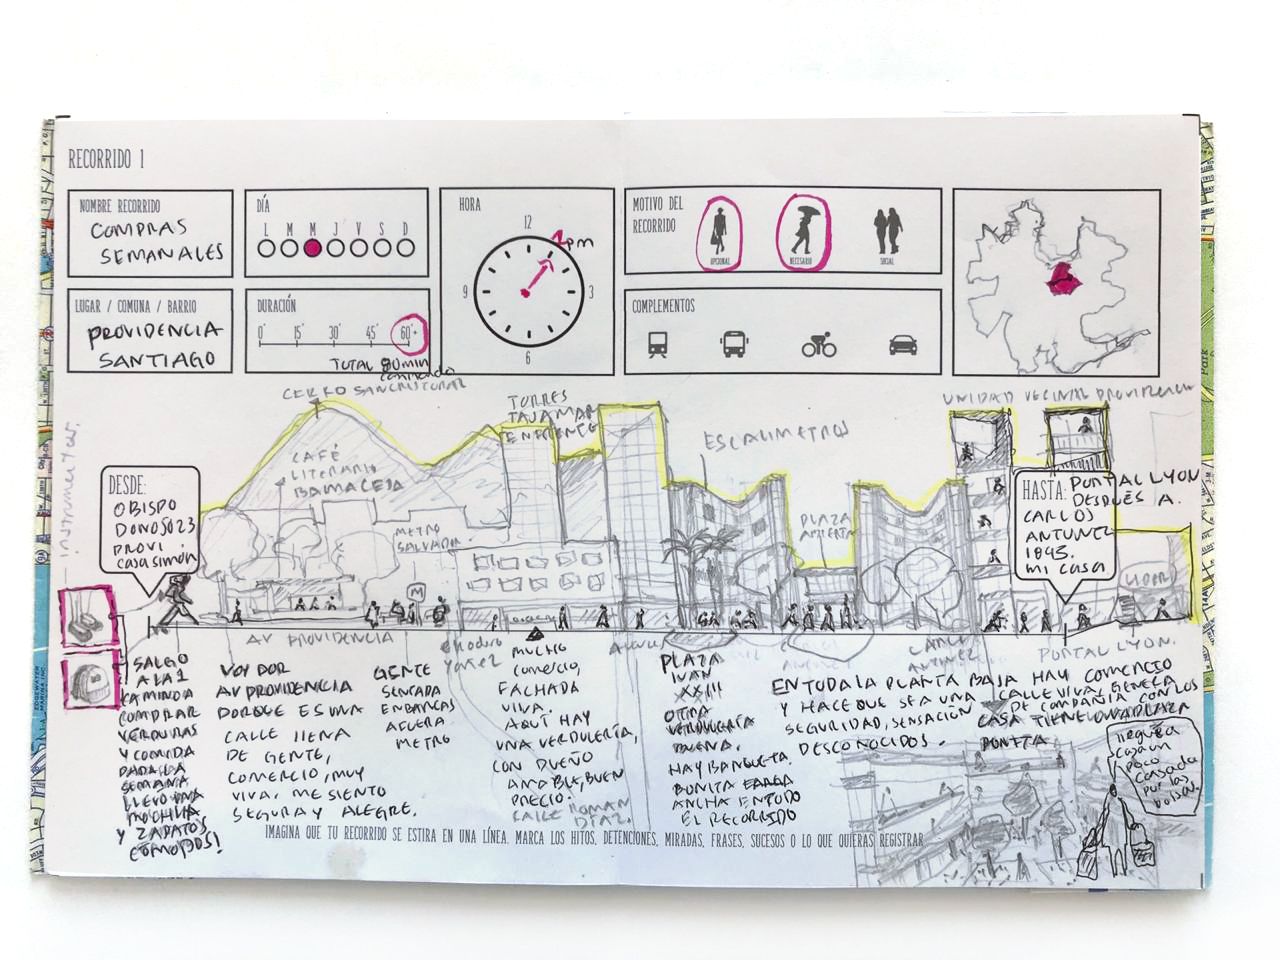 RECORRIDO 1
NOMBRE RECORRIDO
COMPRAS
SEMANALES
DÍA
L M M J V S D
HORA
12
3
6
9
1pm
MOTIVO DEL
RECORRIDO
OPCIONAL
NECESARIO
SOCIAL
LUGAR / COMUNA / BARRIO
PROVIDENCIA
SANTIAGO
DURACIÓN
0' 15' 30' 45' 60'+
TOTAL 80 MIN
caminando
COMPLEMENTOS
CERRO SAN CRISTOBAL
TORRES
TAJAMAR
ENFRENTE
UNIDAD VECINAL PROVIDENCIA
ESCALIMETROS
CAFÉ
LITERARIO
BALMACEDA
METRO
SALVADOR
M
PLAZA
ABIERTA
DESDE:
OBISPO
DONOSO 23
PROVI.
casa simón
HASTA: PORTAL LYON
DESPUÉS A.
CARLOS
ANTUNEZ
1843.
mi casa
LIDER
AV PROVIDENCIA
PORTAL LYON.
SALGO
A LA 1
CAMINO A
COMPRAR
VERDURAS
Y COMIDA
PARA LA
SEMANA
LLEVO UNA
MOCHILA
Y ZAPATOS
CÓMODOS!
VOY POR
AV PROVIDENCIA
PORQUE ES UNA
CALLE LLENA
DE GENTE,
COMERCIO, MUY
VIVA. ME SIENTO
SEGURA Y ALEGRE.
GENTE
SENTADA
EN BANCAS
AFUERA
METRO
ELIODORO
YAÑEZ
MUCHO
COMERCIO,
FACHADA
VIVA.
AQUÍ HAY
UNA VERDULERÍA,
CON DUEÑO
AMABLE, BUEN
PRECIO.
CALLE ROMAN
DIAZ.
PLAZA
JUAN
XXIII
OTRA
VERDULERIA
BUENA.
HAY BANQUETA
BONITA
ANCHA EN TODO
EL RECORRIDO
EN TODA LA PLANTA BAJA HAY COMERCIO
Y HACE QUE SEA UNA CALLE VIVA, GENERA
SEGURIDAD, SENSACIÓN DE COMPAÑIA CON LOS
DESCONOCIDOS.
CASA TIENE UNA PLAZA
llegué a
casa un
poco
cansada
por las
bolsas.
IMAGINA QUE TU RECORRIDO SE ESTIRA EN UNA LÍNEA. MARCA LOS HITOS, DETENCIONES, MIRADAS, FRASES, SUCESOS O LO QUE QUIERAS REGISTRAR